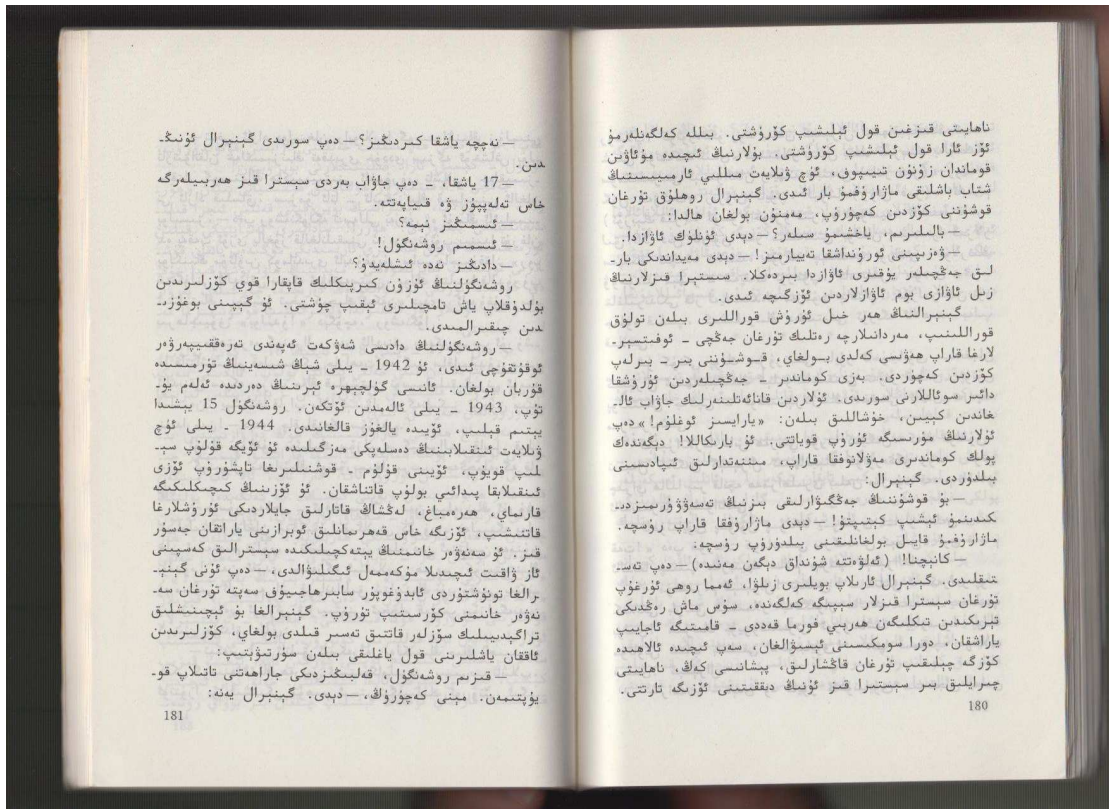 ناھايىتى قىزغىن قول ئېلىشىپ كۆرۈشتى. بىللە كەلگەنلەرمۇ
ئۆز ئارا قول ئېلىشىپ كۆرۈشتى. بۇلارنىڭ ئىچىدە مۇئاۋىن
قوماندان زۇنۇن تىيىپوف، ئۈچ ۋىلايەت مىللىي ئارمىيىسىنىڭ
شتاب باشلىقى ماژاروفمۇ بار ئىدى. گېنېرال روھلۇق تۇرغان
قوشۇننى كۆزدىن كەچۈرۈپ، مەمنۇن بولغان ھالدا:
— بالىلىرىم، ياخشىمۇ سىلەر؟ — دېدى ئۈنلۈك ئاۋازدا.
— ۋەزىپىنى ئورۇنداشقا تەييارمىز! — دېدى مەيداندىكى بار-
لىق جەڭچىلەر يۇقىرى ئاۋازدا بىردەكلا. سىستېرا قىزلارنىڭ
زىل ئاۋازى بوم ئاۋازلاردىن ئۆزگىچە ئىدى.
گېنېرالنىڭ ھەر خىل ئۇرۇش قوراللىرى بىلەن تولۇق
قوراللىنىپ، مەردانىلارچە رەتلىك تۇرغان جەڭچى - ئوفىتسېر-
لارغا قاراپ ھەۋىسى كەلدى بولغاي، قوشۇننى بىر - بىرلەپ
كۆزدىن كەچۈردى. بەزى كوماندىر - جەڭچىلەردىن ئۇرۇشقا
دائىر سوئاللارنى سورىدى. ئۇلاردىن قانائەتلىنەرلىك جاۋاب ئال-
غاندىن كېيىن، خۇشاللىق بىلەن: «يارايسىز ئوغلۇم!» دەپ
ئۇلارنىڭ مۈرىسىگە ئۇرۇپ قوياتتى. ئۇ بارىكاللا! دېگەندەك
پولك كوماندىرى مەۋلانوفقا قاراپ، مىننەتدارلىق ئىپادىسىنى
بىلدۈردى. گېنېرال:
— بۇ قوشۇننىڭ جەڭگىۋارلىقى بىزنىڭ تەسەۋۋۇرىمىزدى-
كىدىنمۇ ئېشىپ كېتىپتۇ! — دېدى ماژاروفقا قاراپ رۇسچە.
ماژاروفمۇ قايىل بولغانلىقىنى بىلدۈرۈپ رۇسچە:
— كانېچنا! (ئەلۋەتتە شۇنداق دېگەن مەنىدە) — دەپ تەس-
تىقلىدى. گېنېرال ئارىلاپ بويلىرى زىلۋا، ئەمما روھى ئۇرغۇپ
تۇرغان سىستېرا قىزلار سېپىگە كەلگەندە، سۇس ماش رەڭدىكى
تېرىكىدىن تىكىلگەن ھەربىي فورما قەددى - قامىتىگە ئاجايىپ
ياراشقان، دورا سومكىسىنى ئېسىۋالغان، سەپ ئىچىدە ئالاھىدە
كۆزگە چېلىقىپ تۇرغان قاڭشارلىق، پېشانىسى كەڭ، ناھايىتى
چىرايلىق بىر سىستېرا قىز ئۇنىڭ دىققىتىنى ئۆزىگە تارتتى.
180
— نەچچە ياشقا كىردىڭىز؟ — دەپ سورىدى گېنېرال ئۇنىڭ-
دىن.
— 17 ياشقا، - دەپ جاۋاب بەردى سىستېرا قىز ھەربىيلەرگە
خاس تەلەپپۇز ۋە قىياپەتتە.
— ئىسمىڭىز نېمە؟
— ئىسمىم روشەنگۈل!
— دادىڭىز نەدە ئىشلەيدۇ؟
روشەنگۈلنىڭ ئۇزۇن كىرپىكلىك قاپقارا قوي كۆزلىرىدىن
بۇلدۇقلاپ ياش تامچىلىرى ئېقىپ چۈشتى. ئۇ گېپىنى بوغۇزى-
دىن چىقىرالمىدى.
— روشەنگۈلنىڭ دادىسى شەۋكەت ئەپەندى تەرەققىيپەرۋەر
ئوقۇتقۇچى ئىدى، ئۇ 1942 - يىلى شىڭ شىسەينىڭ تۈرمىسىدە
قۇربان بولغان. ئانىسى گۈلچېھرە ئېرىنىڭ دەردىدە ئەلەم يۇ-
تۇپ، 1943 - يىلى ئالەمدىن ئۆتكەن. روشەنگۈل 15 يېشىدا
يېتىم قېلىپ، ئۆيىدە يالغۇز قالغانىدى. 1944 - يىلى ئۈچ
ۋىلايەت ئىنقىلابىنىڭ دەسلەپكى مەزگىلىدە ئۇ ئۆيگە قۇلۇپ سې-
لىپ قويۇپ، ئۆيىنى قۇلۇم - قوشنىلىرىغا تاپشۇرۇپ ئۆزى
ئىنقىلابقا پىدائىي بولۇپ قاتناشقان. ئۇ ئۆزىنىڭ كىچىكلىكىگە
قارىماي، ھەرەمباغ، لەڭشاڭ قاتارلىق جايلاردىكى ئۇرۇشلارغا
قاتنىشىپ، ئۆزىگە خاس قەھرىمانلىق ئوبرازىنى ياراتقان جەسۇر
قىز. ئۇ سەنەۋەر خانىمنىڭ يېتەكچىلىكىدە سىستېرالىق كەسپىنى
ئاز ۋاقىت ئىچىدىلا مۇكەممەل ئىگىلىۋالدى، — دەپ ئۇنى گېنې-
رالغا تونۇشتۇردى ئابدۇغوپۇر سابىرھاجىيوف سەپتە تۇرغان سە-
نەۋەر خانىمنى كۆرسىتىپ تۇرۇپ. گېنېرالغا بۇ ئېچىنىشلىق
تراگېدىيىلىك سۆزلەر قاتتىق تەسىر قىلدى بولغاي، كۆزلىرىدىن
ئاققان ياشلىرىنى قول ياغلىقى بىلەن سۈرتىۋېتىپ:
— قىزىم روشەنگۈل، قەلبىڭىزدىكى جاراھەتنى تاتىلاپ قو-
يۇپتىمەن. مېنى كەچۈرۈڭ، — دېدى. گېنېرال يەنە:
181